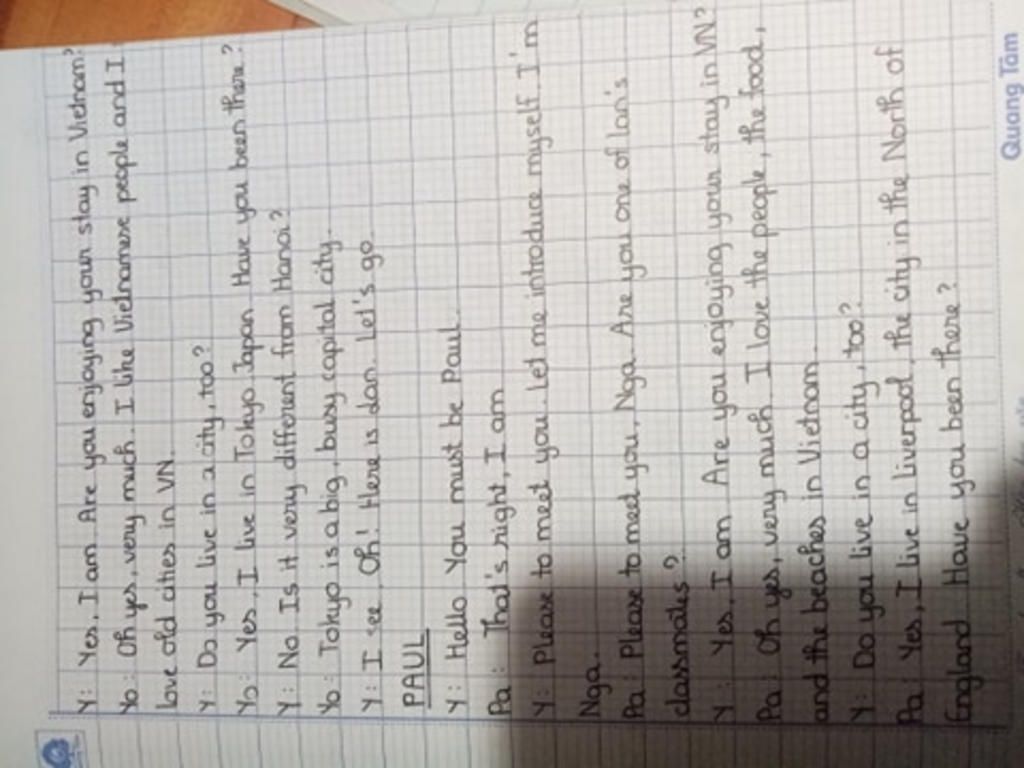 Y: Yes, I am. Are you enjoying your stay in Vietnam?
Yo: Oh yes, very much. I like Vietnamese people and I
love old cities in VN.
Y: Do you live in a city, too?
Yo: Yes, I live in Tokyo Japan. Have you been there?
Y: No. Is it very different from Hanoi?
Yo: Tokyo is a big, busy capital city.
Y: I see, Oh! Here is dan. Let's go.
PAUL
Y: Hello. You must be Paul.
Pa: That's right, I am
Y: Please to meet you. Let me introduce myself. I'm
Nga.
Pa: Please to meet you, Nga. Are you one of lan's
classmates?
Y: Yes, I am. Are you enjoying your stay in VN?
Pa: Oh yes, very much. I love the people, the food,
and the beaches in Vietnam.
Y: Do you live in a city, too?
Pa: Yes, I live in Liverpool, the city in the North of
England. Have you been there?
Quang Tâm